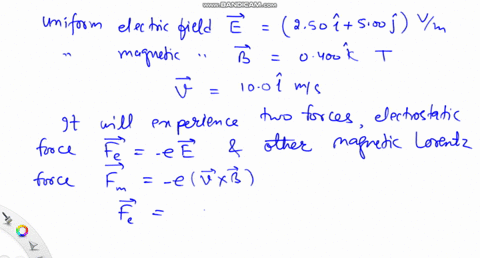 WWW.BANDICAM.COM
uniform electric field E⃗ = (2.50 î + 5.00 ĵ) V/m
" magnetic " B⃗ = 0.400 k̂ T
v⃗ = 10.0 î m/s
It will experience two forces, electrostatic
force F⃗e = -e E⃗ & other magnetic Lorentz
force F⃗m = -e (v⃗ x B⃗)
F⃗e =